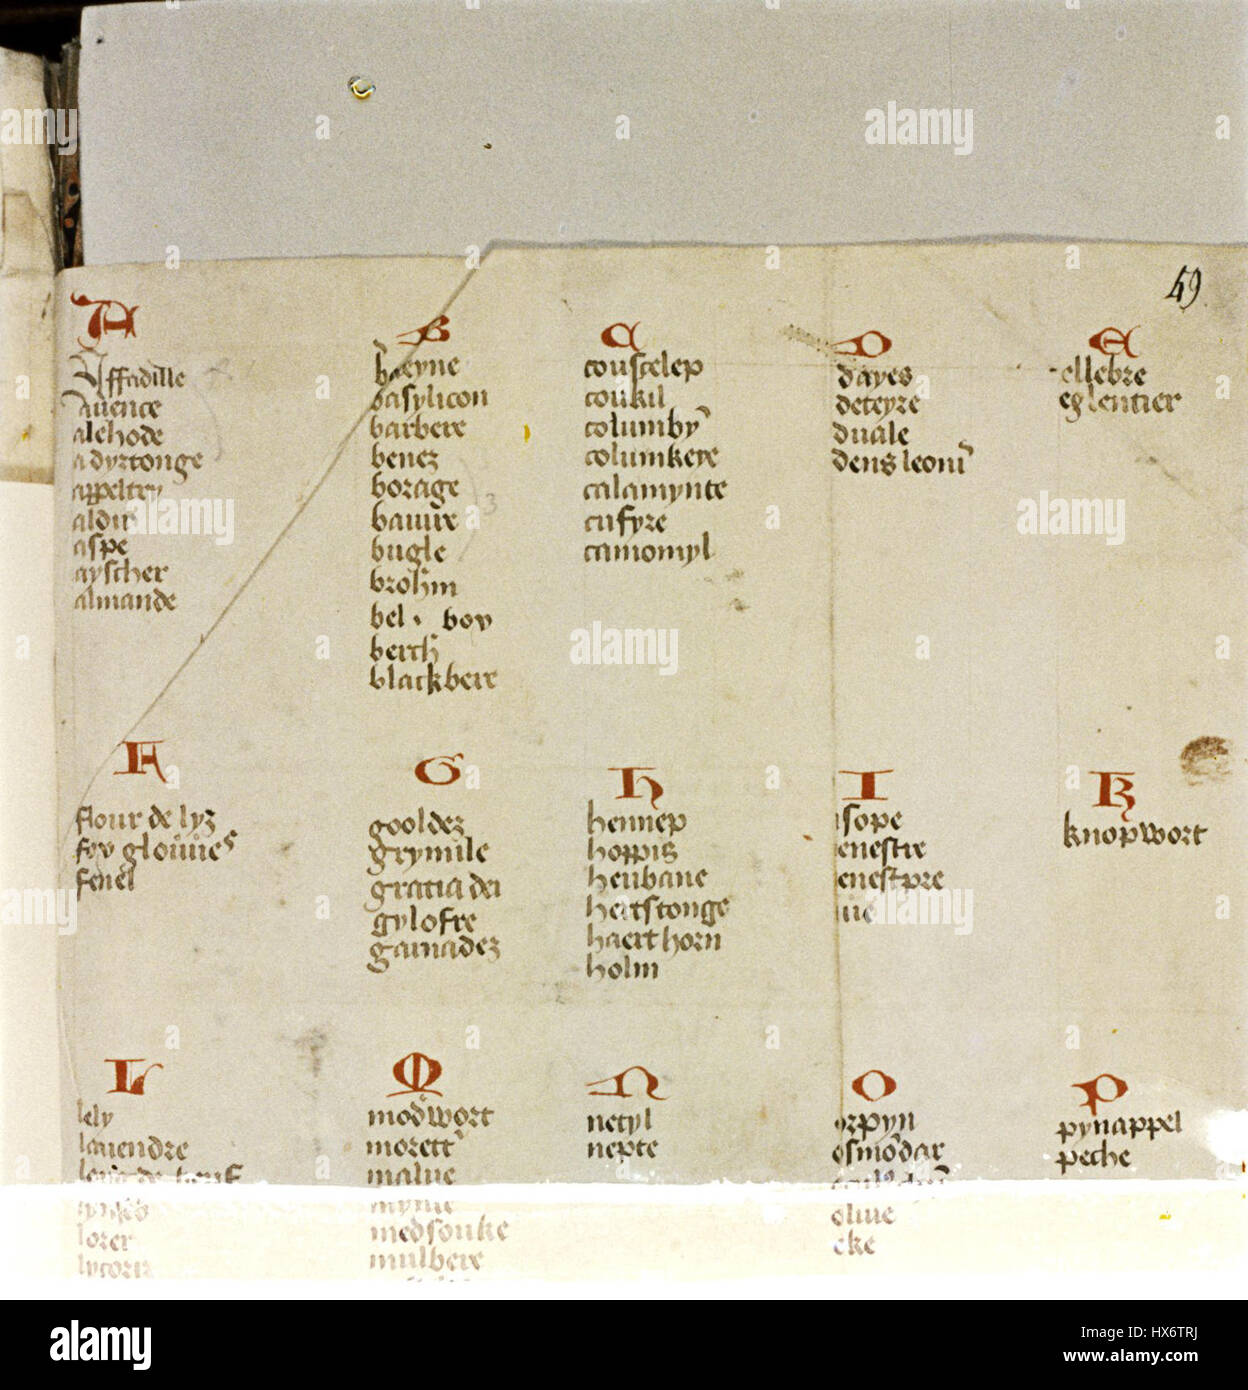 49
A
Affadille
Auence
alehode
adyrtonge
appeltry
aspe
ayscher
almande
B
basylicon
barbere
benez
borage
bauure
bugle
brohm
bel · boy
berch
blackbere
C
couscelep
coukil
columby
columkere
calamynte
cufyre
camomyl
D
dayes
deteyre
duale
dens leoni
E
ellebre
eglentier
F
flour de lyz
fox glouues
fenel
G
gooldez
grymile
gratia dei
gylofre
garnadez
H
hennep
hoppis
henbane
hertstonge
haerthorn
holm
I
isope
enestre
enestpre
iue
K
knopwort
L
lely
lauendre
lorer
lycoriz
M
modwort
morett
malue
myrie
medsouke
mulbere
N
netyl
nepte
O
orpyn
osmodar
oliue
oke
P
pynappel
peche
alamy
Image ID: HX6TRJ
www.alamy.com